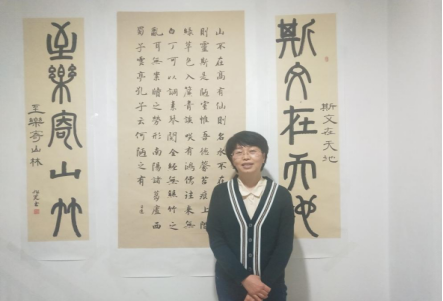 斯文在天地
斯文在天地
山不在高有仙則名水不在
則靈斯是陋室惟吾德馨苔痕上階
綠草色入簾青談笑有鴻儒往來無
白丁可以調素琴閱金經無絲竹之
亂耳無案牘之勞形南陽諸葛廬西
蜀子雲亭孔子云何陋之有
至樂寄山林
至樂寄山林